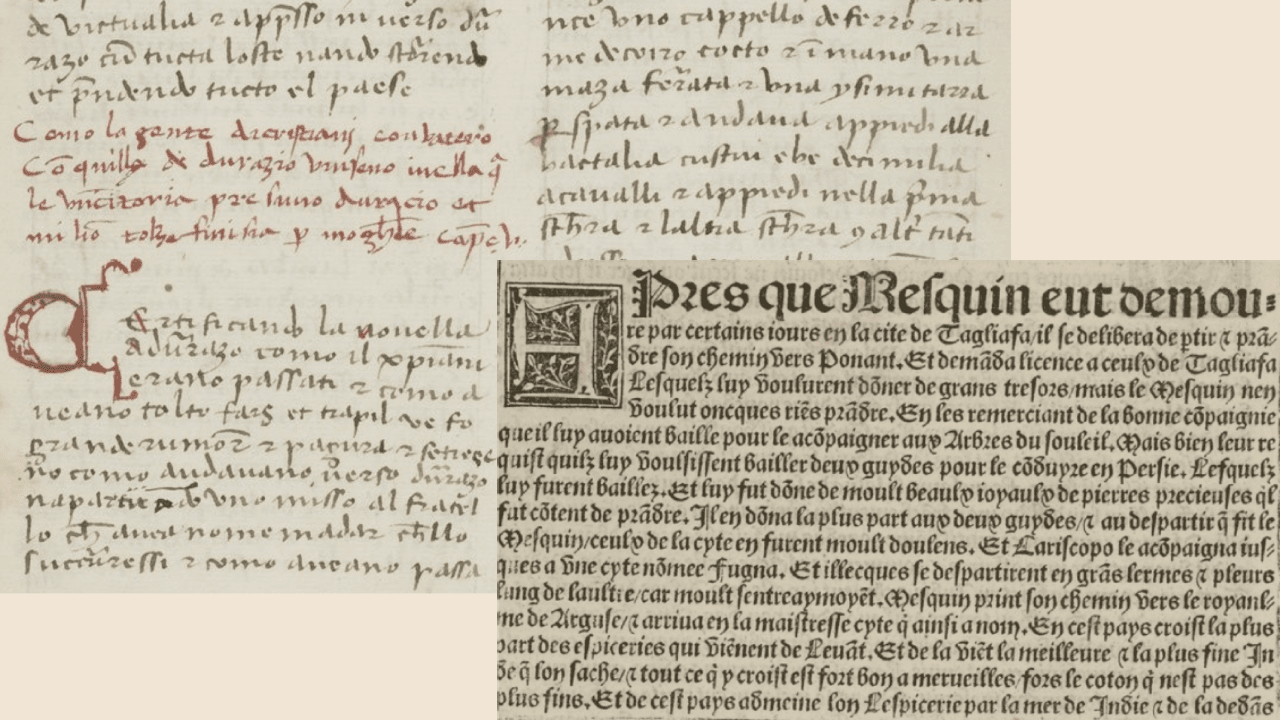 de victualia ⁊ app̄sso in uerso du
razo cū tucta loste nando st̄rendo
et p̄ndendo tucto el paese
Como la gente de cristianj
Cō quilli di durazio
le vincitoria pre suno durazio et
Certificando la nouella
adurazo como il xpiani
erano passati ⁊ como a
ueano tolto fars et trapil ve fo
grande rumor ⁊ pagura ⁊
no como andauano verso durazo
uno misso al fratel
lo ch̄ auea nome madar ch̄llo
succurressi ⁊ como aueano passa
nce vno cappello de ferro ⁊ ar
me de coiro cocto ⁊ ī mano vna
maza ferata ⁊ vna ysimitarra
ꝑ spata ⁊ andaua appiedi alla
bactalia custui ebe decimilia
acaualli ⁊ appiedi nella p̄ma
sch̄ra ⁊ laltra sch̄ra tanti
APres que Mesquin eut demou⸗
re par certains iours en la cite de Tagliafa/il se delibera de ptir ⁊ prā⸗
dre son chemin vers Ponant. Et demāda licence a ceulx de Tagliafa
Lesquelz luy voulurent dōner de grans tresors/mais le Mesquin nen
voulut oncques riēs prādre. En les remerciant de la bonne cōpaignie
que il luy auoient baille pour le acōpaigner aux Arbres du souleil. Mais bien leur re
quist quilz luy voulsissent bailler deux guydes pour le cōduyre en Persie. Lesquelz
luy furent baillez. Et luy fut dōne de moult beaulx ioyaulx de pierres precieuses ql̄
fut cōtent de prādre. Il en dōna la plus part aux deux guydes/⁊ au despartir q̄ fit le
Mesquin/ceulx de la cyte en furent moult doulens. Et Cariscopo le acōpaigna ius⸗
ques a vne cyte nōmee Fugna. Et illecques se despartirent en grās lermes ⁊ pleurs
lung de laultre/car moult sentreaymoyēt. Mesquin print son chemin vers le royaul⸗
me de Arguse/⁊ arriua en la maistresse cyte q̇ ainsi a nom. En cest pays croist la plus
part des espiceries qui viēnent de Leuāt. Et de la viēt la meilleure ⁊ la plus fine In
de q̄ lon sache/⁊ tout ce q̇ y croist est fort bon a merueilles/fors le coton q̇ nest pas des
plus fins. Et de cest pays admeine lon Lespicerie par la mer de Indie ⁊ de la dedās